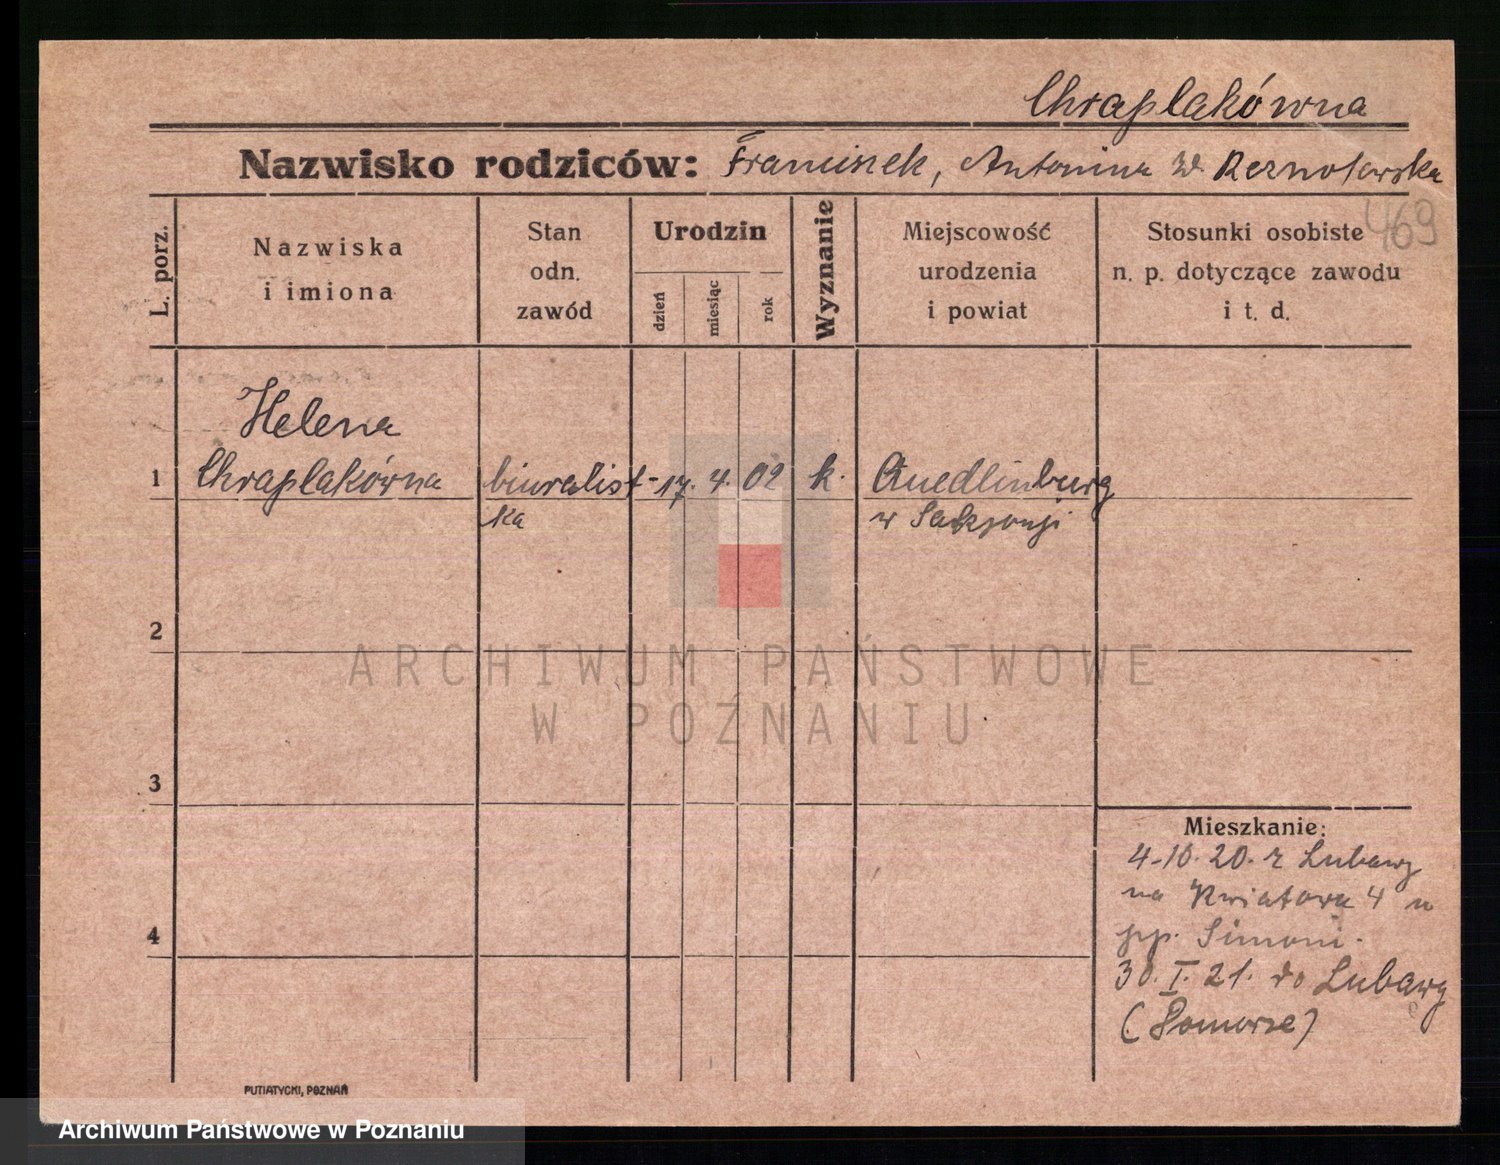 Chraplakówna
Nazwisko rodziców: Franciszek, Antonina zd.
469
L. porz.
Nazwiska
i imiona
Stan
odn.
zawód
Urodzin
dzień
miesiąc
rok
Wyznanie
Miejscowość
urodzenia
i powiat
Stosunki osobiste
n. p. dotyczące zawodu
i t. d.
Helena
1 Chraplakówna biuralist- 17. 4. 02 k. Quedlinburg
ka w Saksonji
2
ARCHIWUM PAŃSTWOWE
W POZNANIU
3
Mieszkanie:
4-10. 20. z Lubawy
na Kwiatowa 4 u
pp. Simoni.
4
30. I. 21. do Lubawy
(Pomorze)
PUTIATYCKI, POZNAŃ
Archiwum Państwowe w Poznaniu